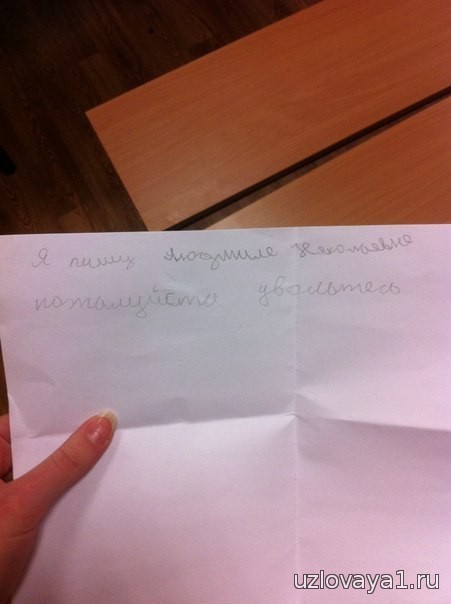 Я пишу Людмиле Николаевне
пожалуйста увольтесь
uzlovaya1.ru